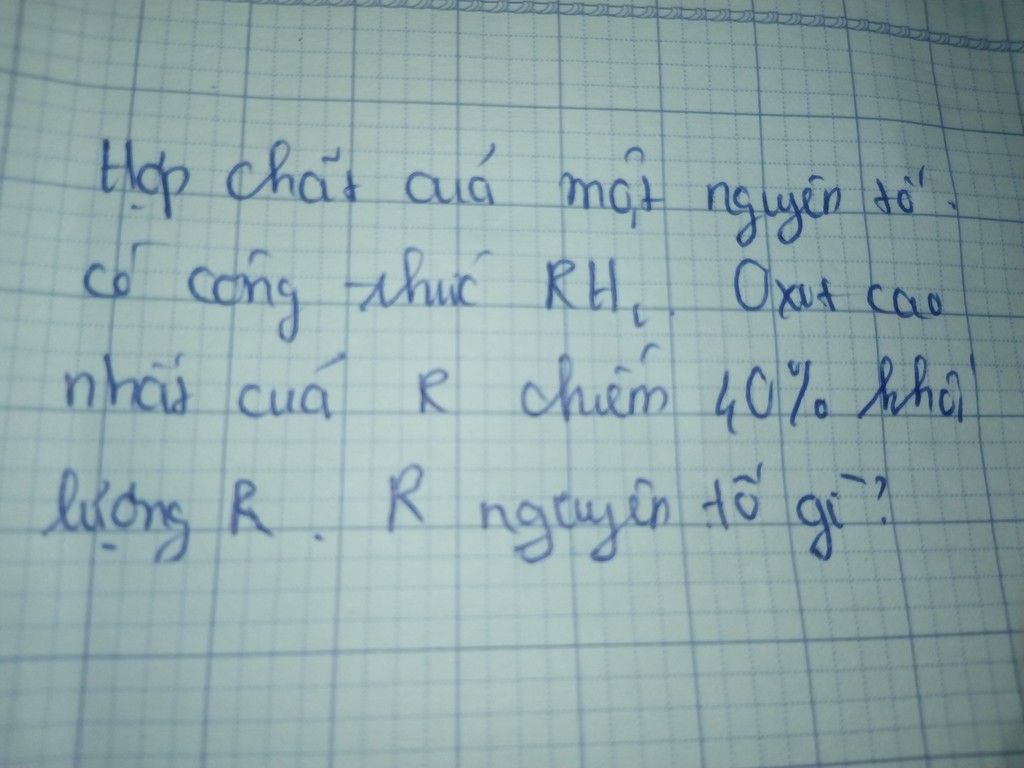 Hợp chất củả một nguyên tố
có công thức RH₄. Oxit cao
nhất củả R chiếm 40% khối
lượng R. R nguyên tố gì?